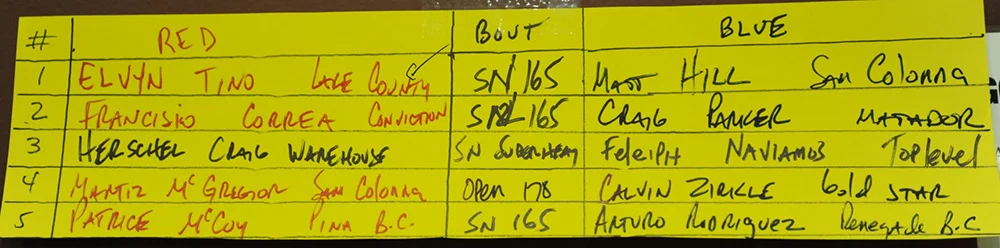 # RED BOUT BLUE
1 ELVYN TINO LAKE COUNTY SN 165 MATT HILL SAM COLONNA
2 FRANCISIO CORREA CONVICTION SN 165 CRAIG PARKER MATADOR
3 HERSCHEL CRAIG WAREHOUSE SN SUPERHEAVY Feleiph NAVIAMOS Toplevel
4 MANTIZ McGREGIOR SAM COLONNA OPEN 178 CALVIN ZIRKLE Gold STAR
5 PATRICE McCoy PINA B.C. SN 165 ARTURO RODRIGUEZ Renegade B.C